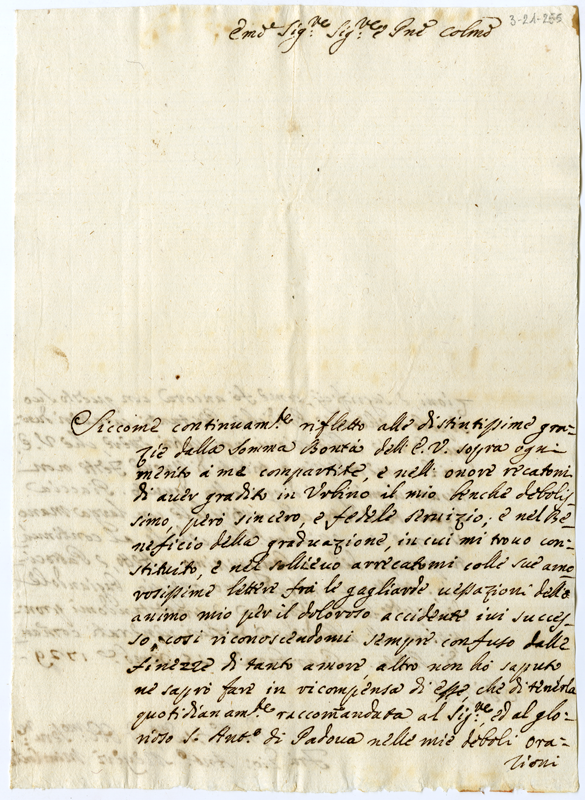 3-21-255
Em̃o Sig.re Sig.re e Pñe Colm̃o
Siccome continuam.te rifletto alle distintissime gra-
zie dalla somma Bontà dell' E. V. sopra ogni
merito à me compartite, e nell' onore recatomi
di aver gradito in Urbino il mio benche debolis-
simo, però sincero, e fedele servizio, e nel Be-
neficio della graduazione, in cui mi trovo con-
stituito, e nel sollievo arrecatomi colle sue amo-
rosissime lettere frà le gagliarde vessazioni dell'
animo mio per il doloroso accidente ivi succes-
so, così riconoscendomi sempre confuso dalle
finezze di tanto amore altro non hò saputo
ne saprò fare in vicompensa di esse che di tenerla
quotidianam.te raccomandata al Sig.re, ed al glo-
rioso S. Ant.o di Padova nelle mie deboli ora-
zioni